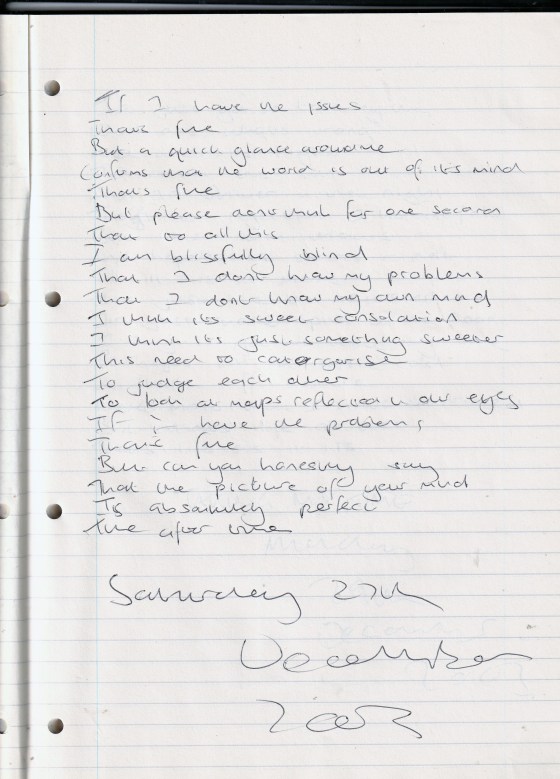 If I have the issues
Thats fine
But a quick glance around me
Confirms that the world is out of its mind
Thats fine
But please dont think for one second
That to all this
I am blissfully blind
That I dont know my problems
That I dont know my own mind
I think its sweet consolation
I think its just something sweeter
This need to catergorise
To judge each other
To look at maps reflected in our eyes
If I have the problems
Thats fine
But can you honestly say
That the picture of your mind
Is absolutely perfect
Time after time
Saturday 27th
December
2003